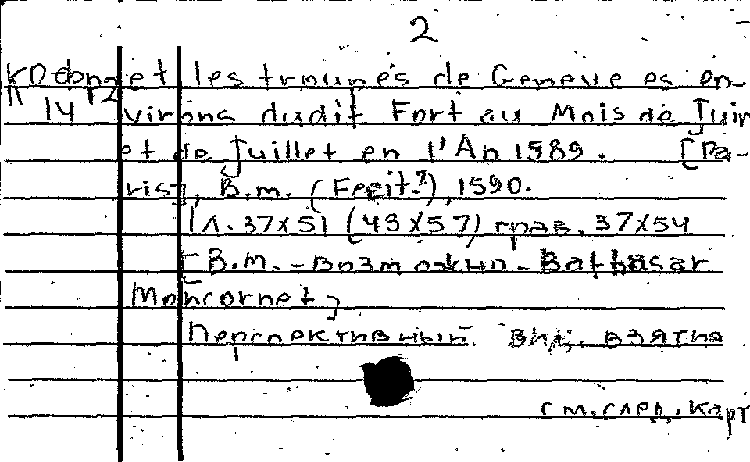 2
et les troupes de Geneve es en-
14 virons dudit Fort au Mois de Juin
et de Juillet en l'An 1589. [Pa-
ris], B.m. (Fecit.?), 1590.
1 л. 37x51 (43x57) грав. 37x54
[B.m. - возможно - Balthasar
Moncornet]
Перспективный вид. взятия
см. след. карт